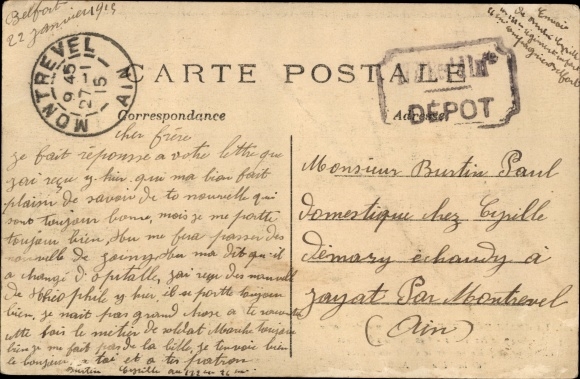 Belfort
22 janvier 1915
Envoie
de
MONTREVEL
AIN
9 45
27-1
15
CARTE POSTALE
DÉPÔT
Correspondance
Adresse
cher frère
je fait réponsse a votre lettre que
j'ai reçue y hier, qui ma bien fait
plaisir de savoir de te nouvelle qui
sont toujour bonne, mois je me portte
toujour bien, me fera passer des
nouvelle de ma dit qu'il
a changé d'opitalle, j'ai reçu des nouvelle
de théophile y hier, il se portte toujour
bien, je n'ait pas grand chose a te
cette fois le métier de soldat toujour
bien je me fait pas de la bille, je t'envoie bien
le bonjour a toi et a tes patron
Burtin Cyrille au
Monsieur Burtin Paul
domestique chez Cyrille
démary échaudy à
jayat Par Montrevel
(Ain)